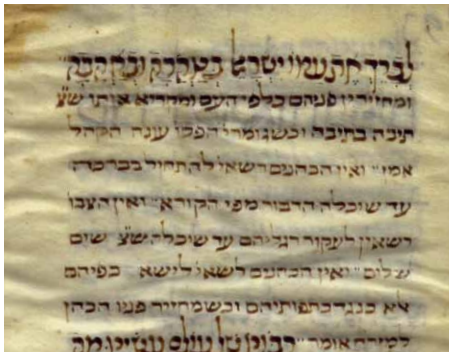 לברך את עמו ישראל באהבה
ומחזירין פניהם כלפי העם ומקריא אותו ש״צ
תיבה בתיבה וכשגומרי הפסו׳ עונה הקהל
אמן ואין הכהנים רשאי׳ להתחיל בברכה
עד שיכלה הדבור מפי הקורא ואין הצבו׳
רשאין לעקור רגליהם עד שיכלה ש״צ שים
שלום ואין הכהנים רשאי׳ לישא כפיהם
אלא כנגד כתפותיהם וכשמחזיר פניו הכהן
למזרח אומר רבונו של עולם עשינו מה